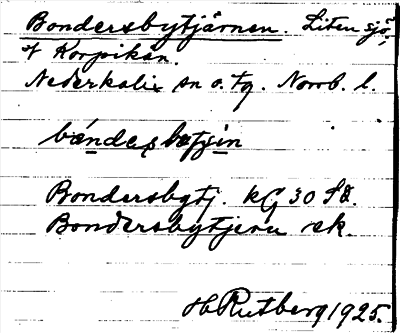 Bondersbytjärnen. Liten sjö,
t Korpikån.
Nederkalix sn o. tg. Norrb. l.
Bondersbytj. kG 30 SO.
Bondersbytjern rek.
H Rutberg 1925.